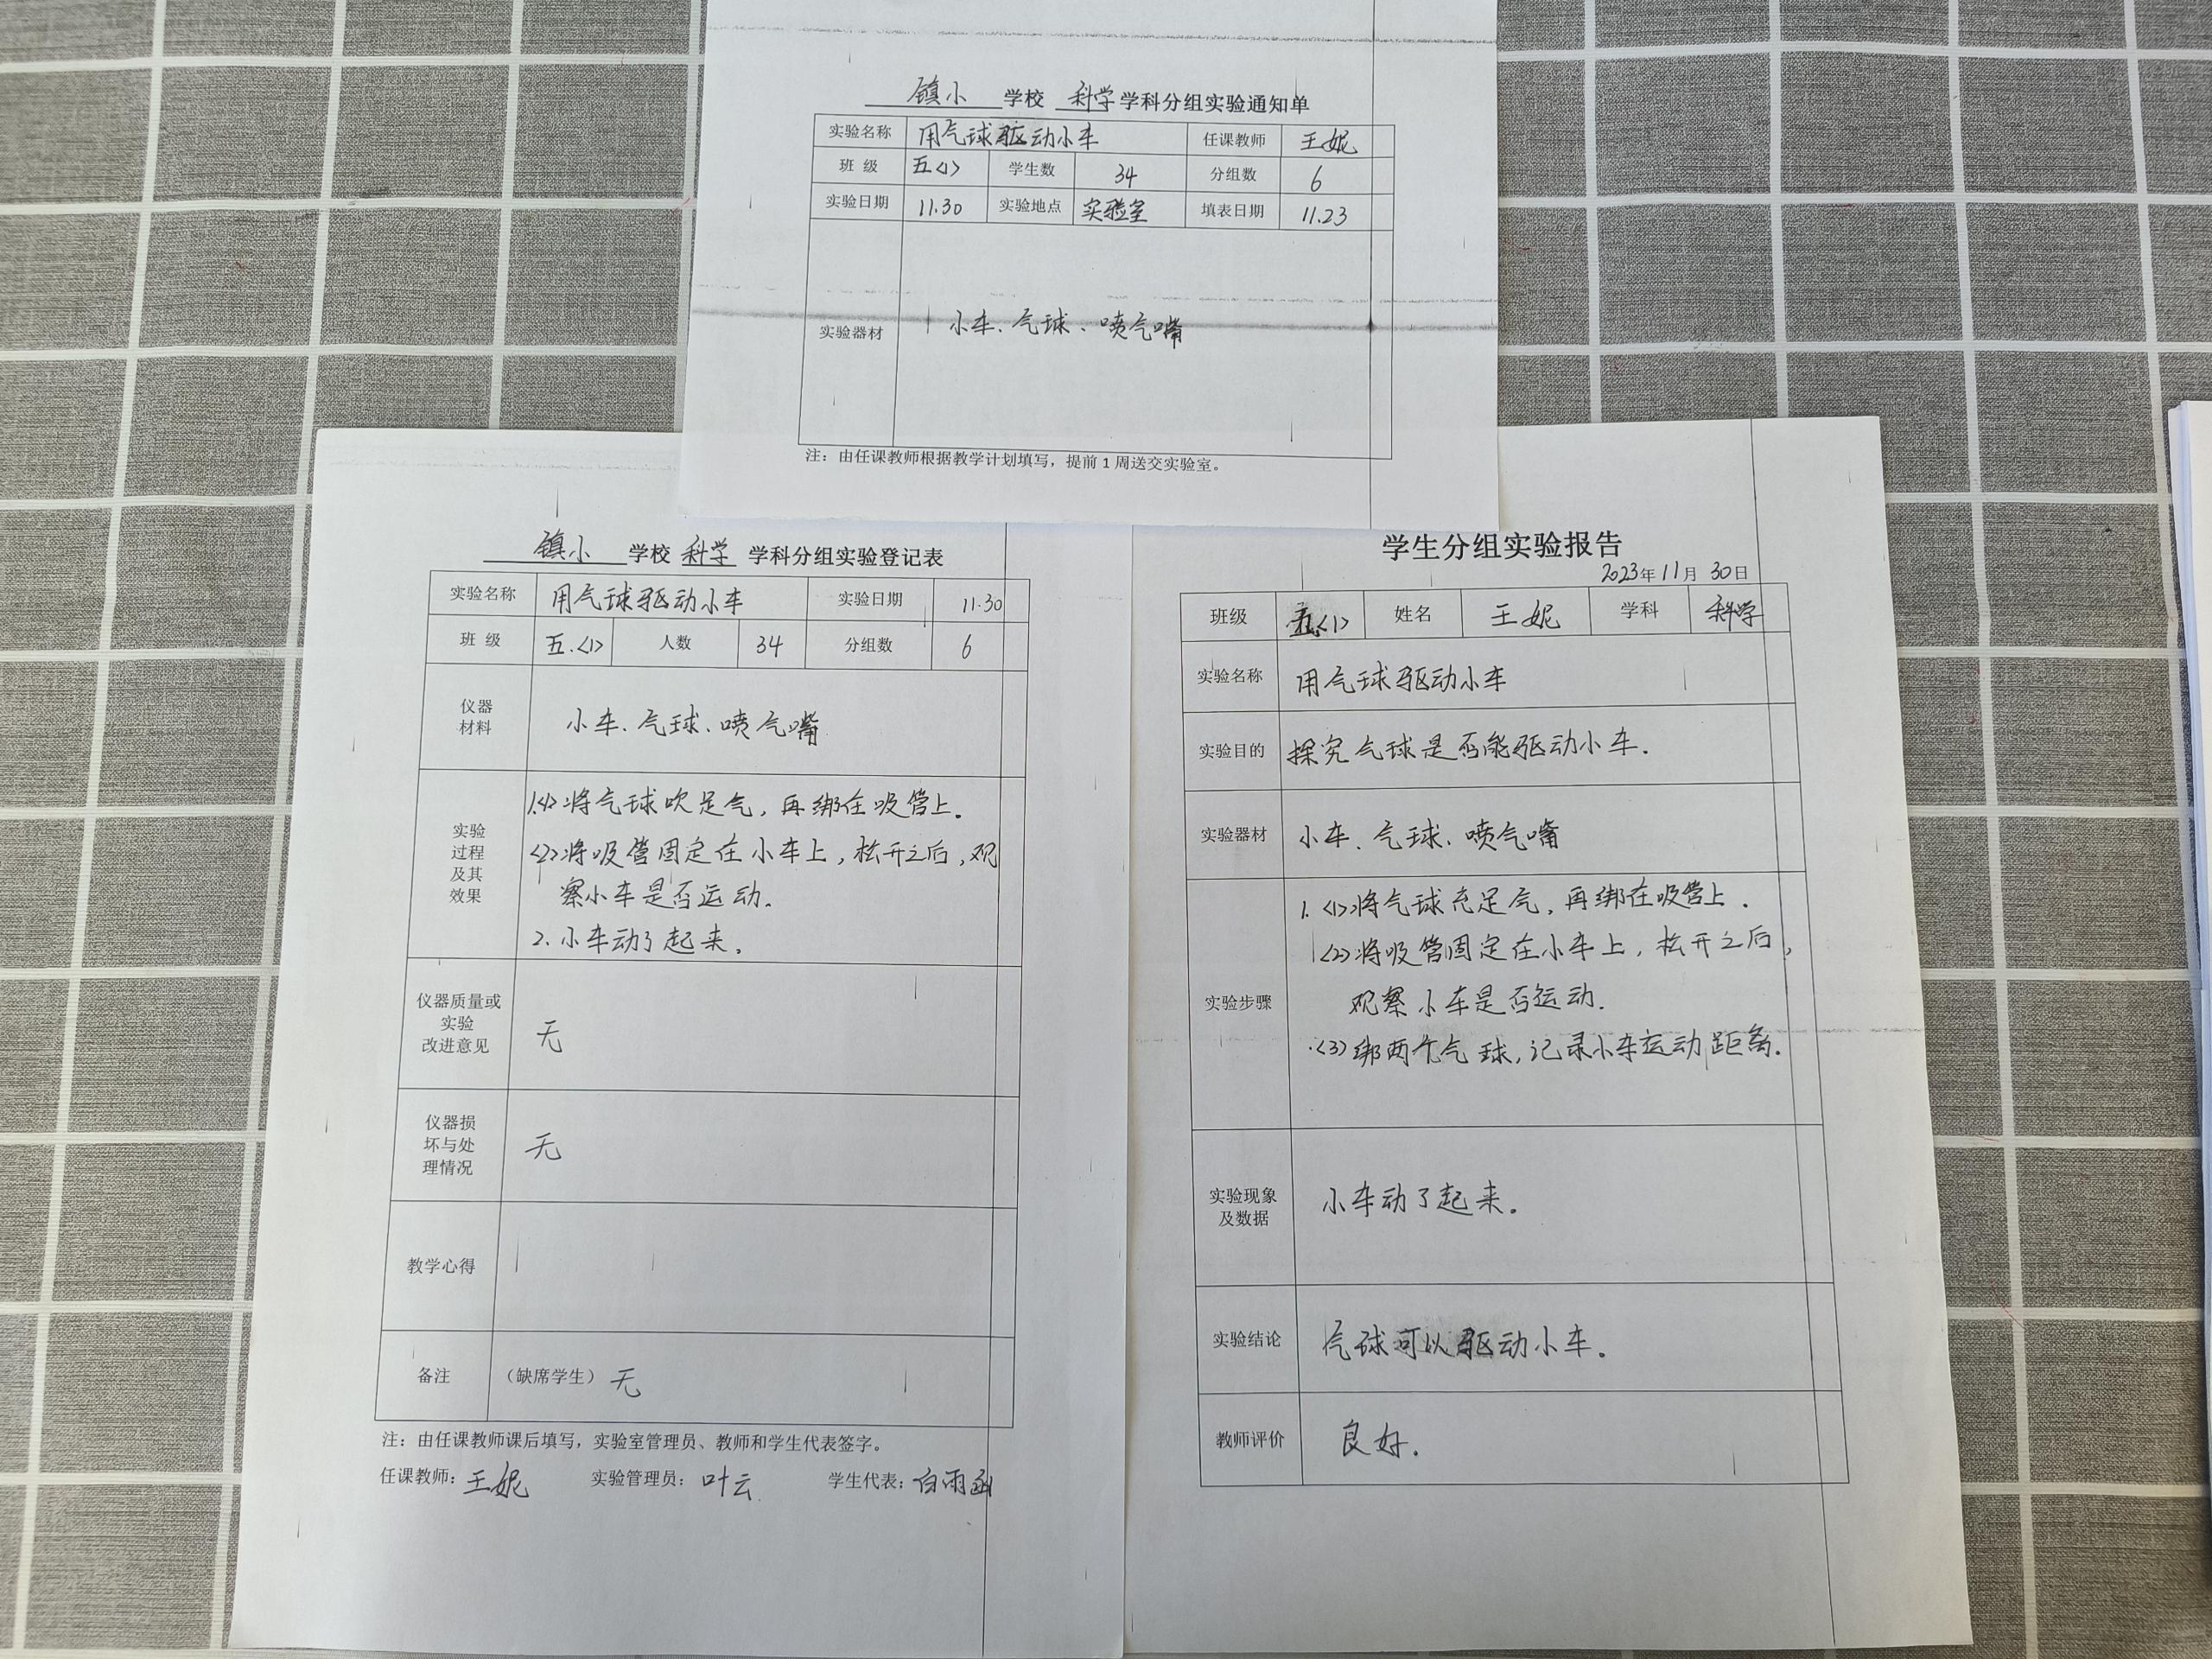 镇小 学校 科学 学科分组实验通知单
实验名称 用气球驱动小车 任课教师 王妮
班 级 五<1> 学生数 34 分组数 6
实验日期 11.30 实验地点 实验室 填表日期 11.23
实验器材 小车、气球、喷气嘴
注：由任课教师根据教学计划填写，提前1周送交实验室。
镇小 学校 科学 学科分组实验登记表
实验名称 用气球驱动小车 实验日期 11.30
班 级 五.<1> 人数 34 分组数 6
仪器
材料
小车、气球、喷气嘴
实验
过程
及其
效果
1.<1>将气球吹足气，再绑在吸管上。
<2>将吸管固定在小车上，松开之后，观
察小车是否运动.
2.小车动了起来.
仪器质量或
实验
改进意见
无
仪器损
坏与处
理情况
无
教学心得
备注 （缺席学生）无
注：由任课教师课后填写，实验室管理员、教师和学生代表签字。
任课教师：王妮 实验管理员：叶云 学生代表：白雨函
学生分组实验报告
2023年11月30日
班级 五<1> 姓名 王妮 学科 科学
实验名称 用气球驱动小车
实验目的 探究气球是否能驱动小车.
实验器材 小车、气球、喷气嘴
实验步骤
1.<1>将气球充足气，再绑在吸管上.
<2>将吸管固定在小车上，松开之后，
观察小车是否运动.
<3>绑两个气球，记录小车运动距离.
实验现象
及数据
小车动了起来.
实验结论 气球可以驱动小车.
教师评价 良好.